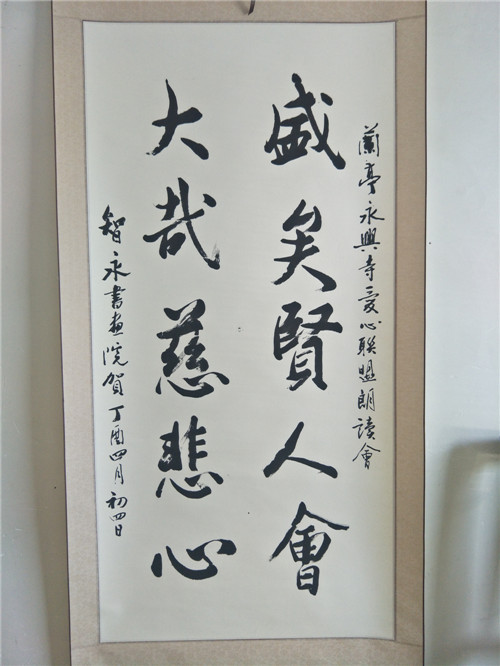 蘭亭永興寺愛心聯盟朗讀會
盛矣賢人會
大哉慈悲心
智永書畫院賀丁酉四月初四日